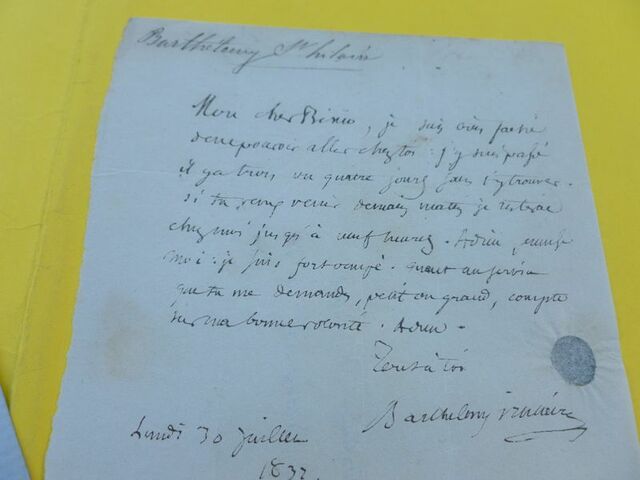 Barthelemy St hilaire
Mon cher, je suis très faché
de ne pouvoir aller chez toi : j'y suis passé
il y a trois ou quatre jours sans t'y trouver.
si tu veux venir demain matin je resterai
chez moi jusqu'à neuf heures. Adieu, excuse
moi : je suis fort occupé. quant au service
que tu me demandes, petit ou grand, compte
sur ma bonne volonté. Adieu.
Tout à toi
Barthelemy St hilaire
Lundi 30 juillet
1832.